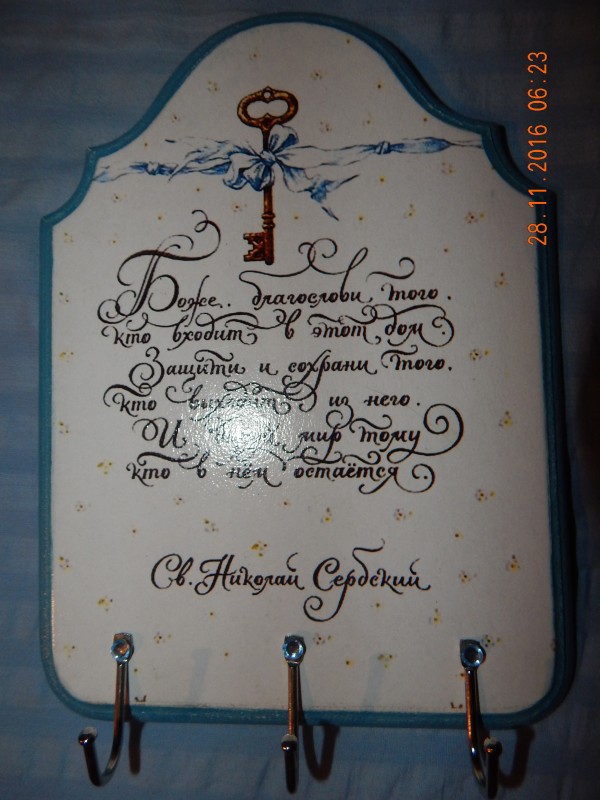 Боже, благослови того,
кто входит в этот дом.
Защити и сохрани того,
кто выходит из него.
И мир тому
кто в нём остаётся.
Св. Николай Сербский
28.11.2016 06:23